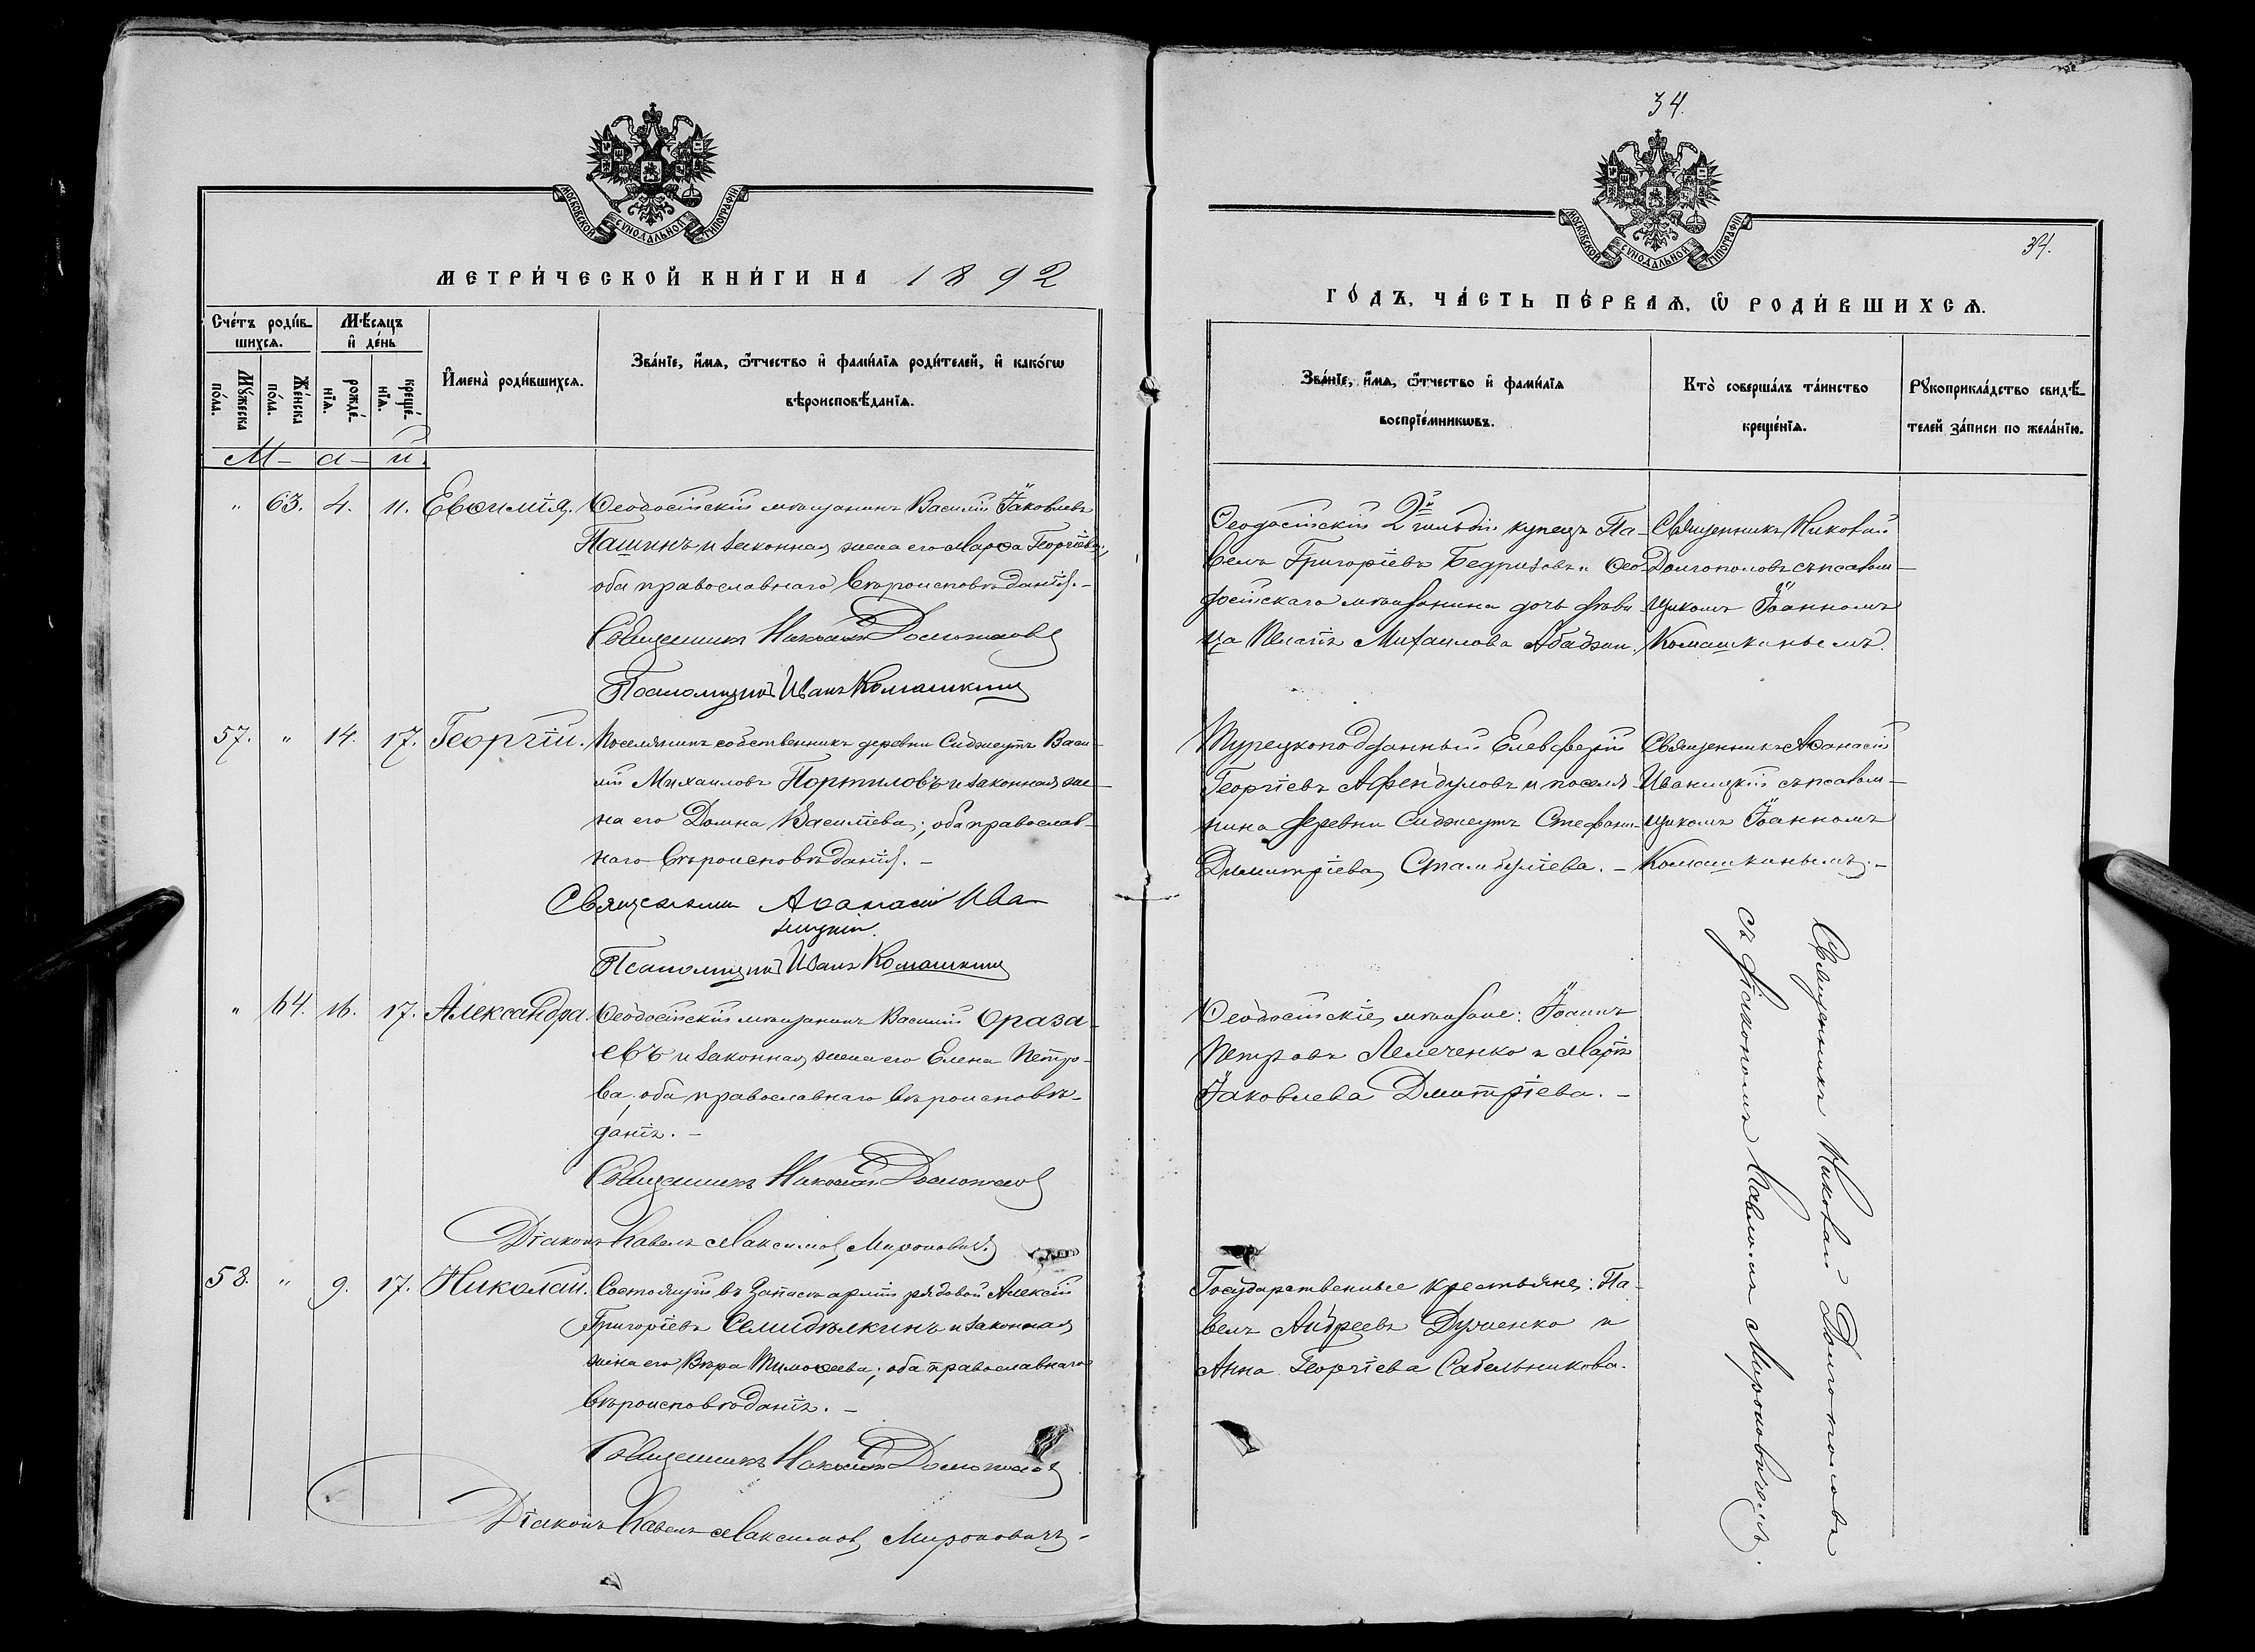 МОСКОВСКОЙ СѴНОДАЛЬНОЙ ТИПОГРАФІИ
МЕТРИ́ЧЕСКОЙ КНИ́ГИ НА 1892
Сче́тъ роди́вшихсѧ.
Мꙋ́жеска по́ла.
Же́нска по́ла.
Мѣ́сѧцъ и҆ де́нь
рожде́нїѧ.
креще́нїѧ.
И҆мена̀ роди́вшихсѧ.
Зва́нїе, и҆́мѧ, ѻ҆́тчество и҆ фами́лїѧ роди́телей, и҆ како́гѡ
вѣроисповѣ́данїѧ.
М - а - й.
" 63. 4. 11. Евѳимія. Ѳеодосійскій мѣщанинъ Василій Іаковлевъ
Пашинъ и законная жена его Марѳа Георгіева,
оба православнаго вѣроисповѣданія. -
Священникъ Николай Долгополовъ
Псаломщикъ Иванъ Комашкинъ
57. " 14. 17. Георгій. Поселянинъ собственникъ деревни Сиджеутъ Васи-
лій Михаиловъ Портиловъ и законная же-
на его Домна Василіева; оба православ-
наго вѣроисповѣданія. -
Священникъ Аѳанасій Ива-
ницкій.
Псаломщикъ Иванъ Комашкинъ
" 64. 16. 17. Александра. Ѳеодосійскій мѣщанинъ Василій Ораза-
евъ и законная жена его Елена Петро-
ва, оба православнаго вѣроисповѣ-
данія. -
Священникъ Николай Долгополовъ
Діаконъ Павелъ Максимов Мироновичъ
58. " 9. 17. Николай. Состоящій въ запасѣ арміи рядовой Алексій
Григоріевъ Семидѣлкинъ и законная
жена его Вѣра Тимоѳеева; оба православнаго
вѣроисповѣданія. -
Священникъ Николай Долгополовъ
Діаконъ Павелъ Максимов Мироновичъ -
34.
МОСКОВСКОЙ СѴНОДАЛЬНОЙ ТИПОГРАФІИ
34.
ГО́ДЪ, ЧА́СТЬ ПЕ́РВАѦ, Ѡ҆ РОДИ́ВШИХСѦ.
Зва́нїе, и҆́мѧ, ѻ҆́тчество и҆ фами́лїѧ
воспрїе́мникѡвъ.
Кто̀ соверша́лъ та́инство
креще́нїѧ.
Рꙋкоприкла́дство свидѣ́-
телей за́писи по жела́нїю.
Ѳеодосійскій 2й гильдіи купецъ Па-
велъ Григоріевъ Бедризовъ и Ѳео-
досійскаго мѣщанина дочь дѣви-
ца Михаилова
Священникъ Николай
Долгополовъ съ псалом-
щикомъ Іоанномъ
Комашкинымъ.
Турецкоподданный Елевѳерій
Георгіевъ Афендуловъ и поселя-
нина деревни Сиджеутъ Стефани-
Димитріева Стамбуліева. -
Священникъ Аѳанасій
Иваницкій съ псалом-
щикомъ Іоанномъ
Комашкинымъ. -
Ѳеодосійскіе мѣщане: Іоаннъ
Петровъ Лемеченко и Марія
Іаковлева Дмитріева. -
Государственные крестьяне: Па-
велъ Андреевъ и
Анна Георгіева Сабельникова.
Священникъ Николай Долгополовъ
съ діакономъ Павломъ Мироновичемъ.